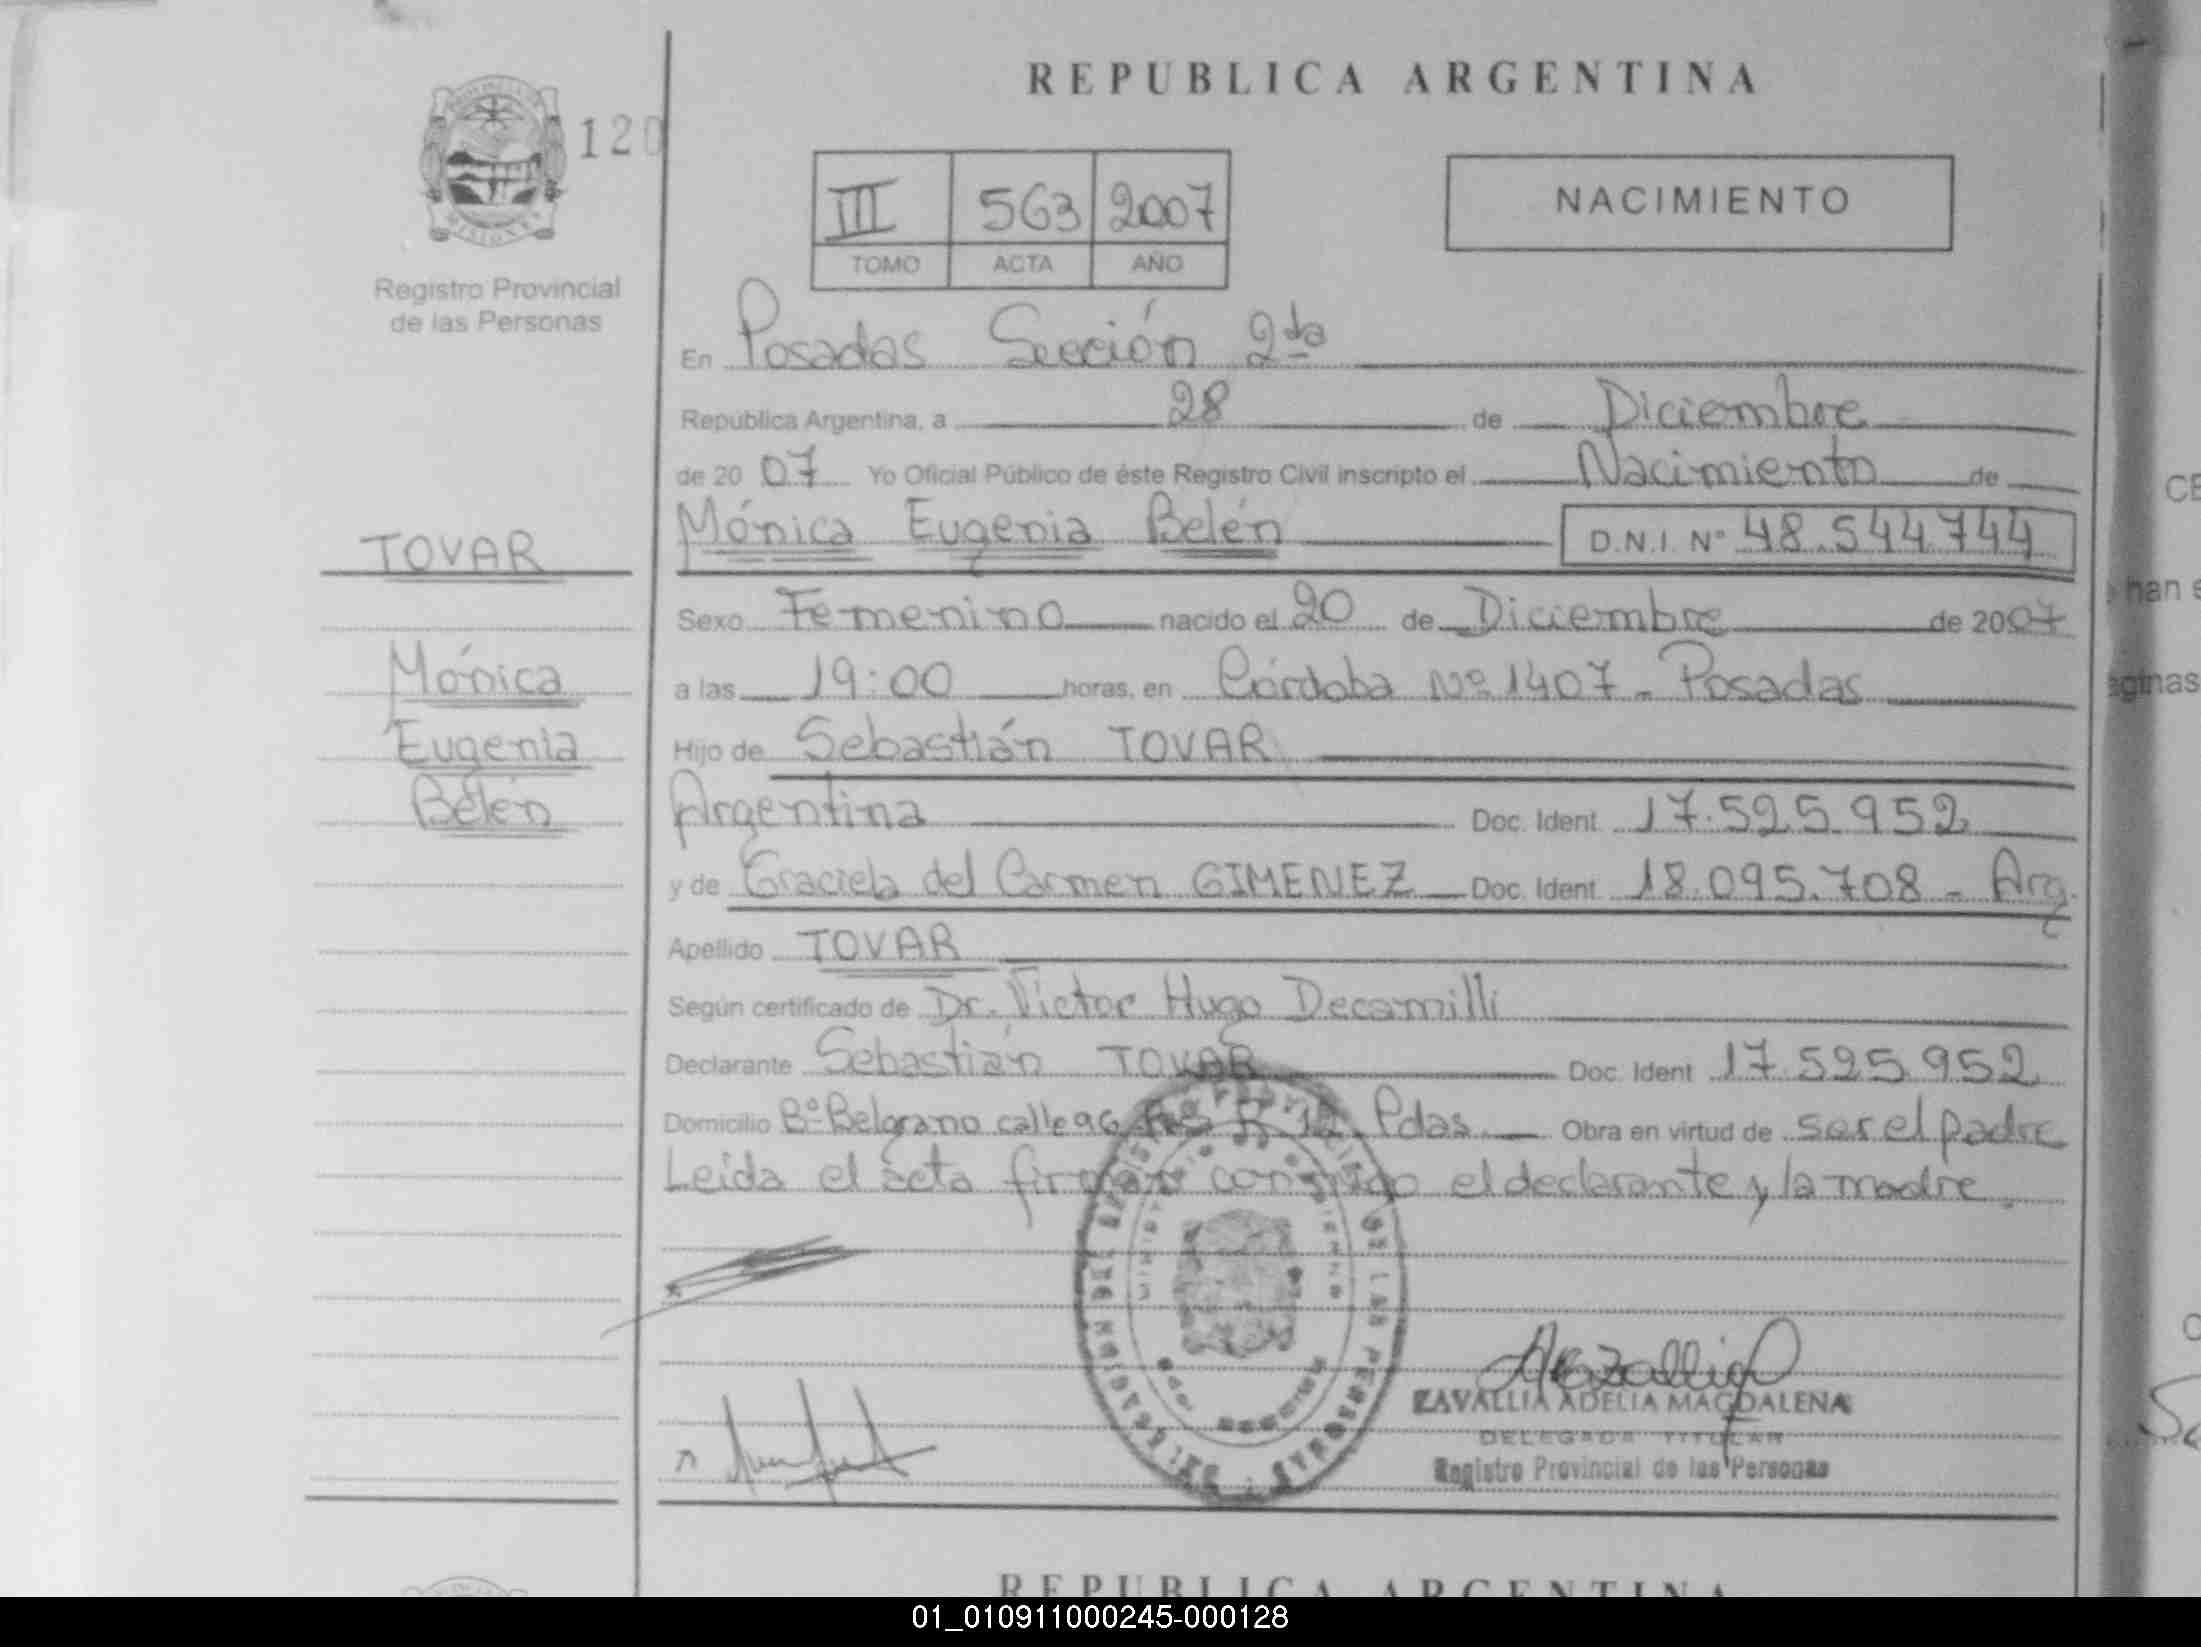 REPUBLICA ARGENTINA
120
III 563 2007
TOMO ACTA AÑO
NACIMIENTO
Registro Provincial
de las Personas
En Posadas Sección 2da
República Argentina, a 28 de Diciembre
de 2007 Yo Oficial Público de éste Registro Civil inscripto el Nacimiento de
Mónica Eugenia Belén D.N.I. Nº 48.544.744
TOVAR
Mónica
Eugenia
Belén
Sexo Femenino nacido el 20 de Diciembre de 2007
a las 19:00 horas, en Córdoba Nº 1407 - Posadas
Hijo de Sebastián TOVAR
Argentina Doc. Ident. 17.525.952
y de Graciela del Carmen GIMENEZ Doc. Ident. 18.095.708 - Arg.
Apellido TOVAR
Según certificado de Dr. Victor Hugo Decamilli
Declarante Sebastián TOVAR Doc. Ident 17.525.952
Domicilio Bº Belgrano calle 96 Pdas. Obra en virtud de ser el padre
Leida el acta firman conmigo el declarante y la madre.
ZAVALLIA ADELIA MAGDALENA
DELEGADA TITULAR
Registro Provincial de las Personas
REPUBLICA ARGENTINA
01_010911000245-000128